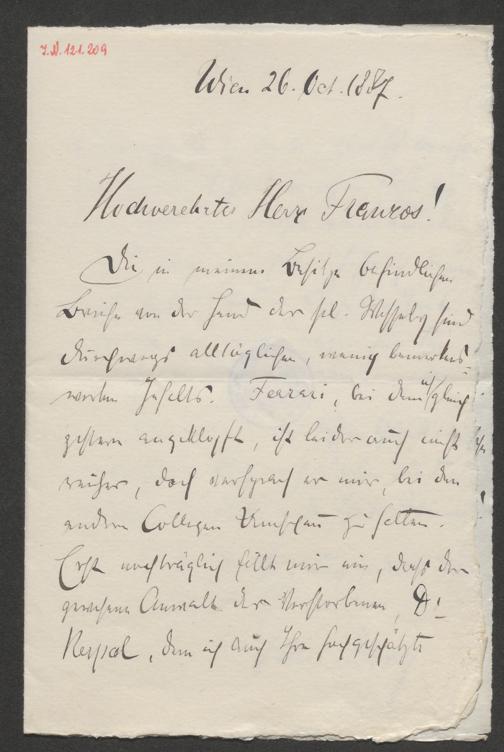 J.N. 121.209
Wien 26. Oct. 1887.
Hochverehrter Herr Franzos!
Die in meinem Besitze befindlichen
Briefe von der Hand der sel. Wesselÿ sind
durchwegs alltäglichen, wenig bemerkens-
werten Inhalts. Ferrari, bei dem ich gleich
gestern angeklopft, ist leider auch nicht
reicher, doch versprach er mir, bei den
andern Collegen Umschau zu halten.
Erst nachträglich fällt mir ein, dass der
gewesene Anwalt der Verstorbenen, Dr.
, dem ich auch Ihre hochgeschätzte